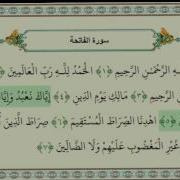 سورة الفاتحة
ـهِ الرَّحْمَٰنِ الرَّحِيمِ ﴿١﴾ الْحَمْدُ لِلَّهِ رَبِّ الْعَالَمِينَ
الرَّحِيمِ ﴿٣﴾ مَالِكِ يَوْمِ الدِّينِ ﴿٤﴾ إِيَّاكَ نَعْبُدُ وَإِيَّا
﴿٥﴾ اهْدِنَا الصِّرَاطَ الْمُسْتَقِيمَ ﴿٦﴾ صِرَاطَ الَّذِينَ أَ
غَيْرِ الْمَغْضُوبِ عَلَيْهِمْ وَلَا الضَّالِّينَ ﴿٧﴾